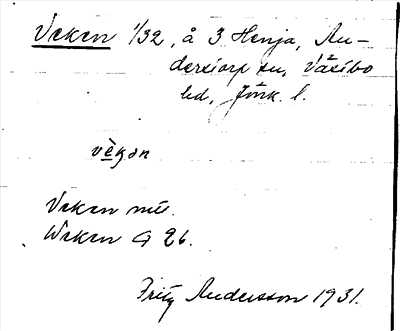 Veken 1/32, å 3 Henja, An-
derstorp sn, Västbo
hd, Jönk. l.
vèkən
Veken mü.
Weken G 26.
Fritz Andersson 1931.